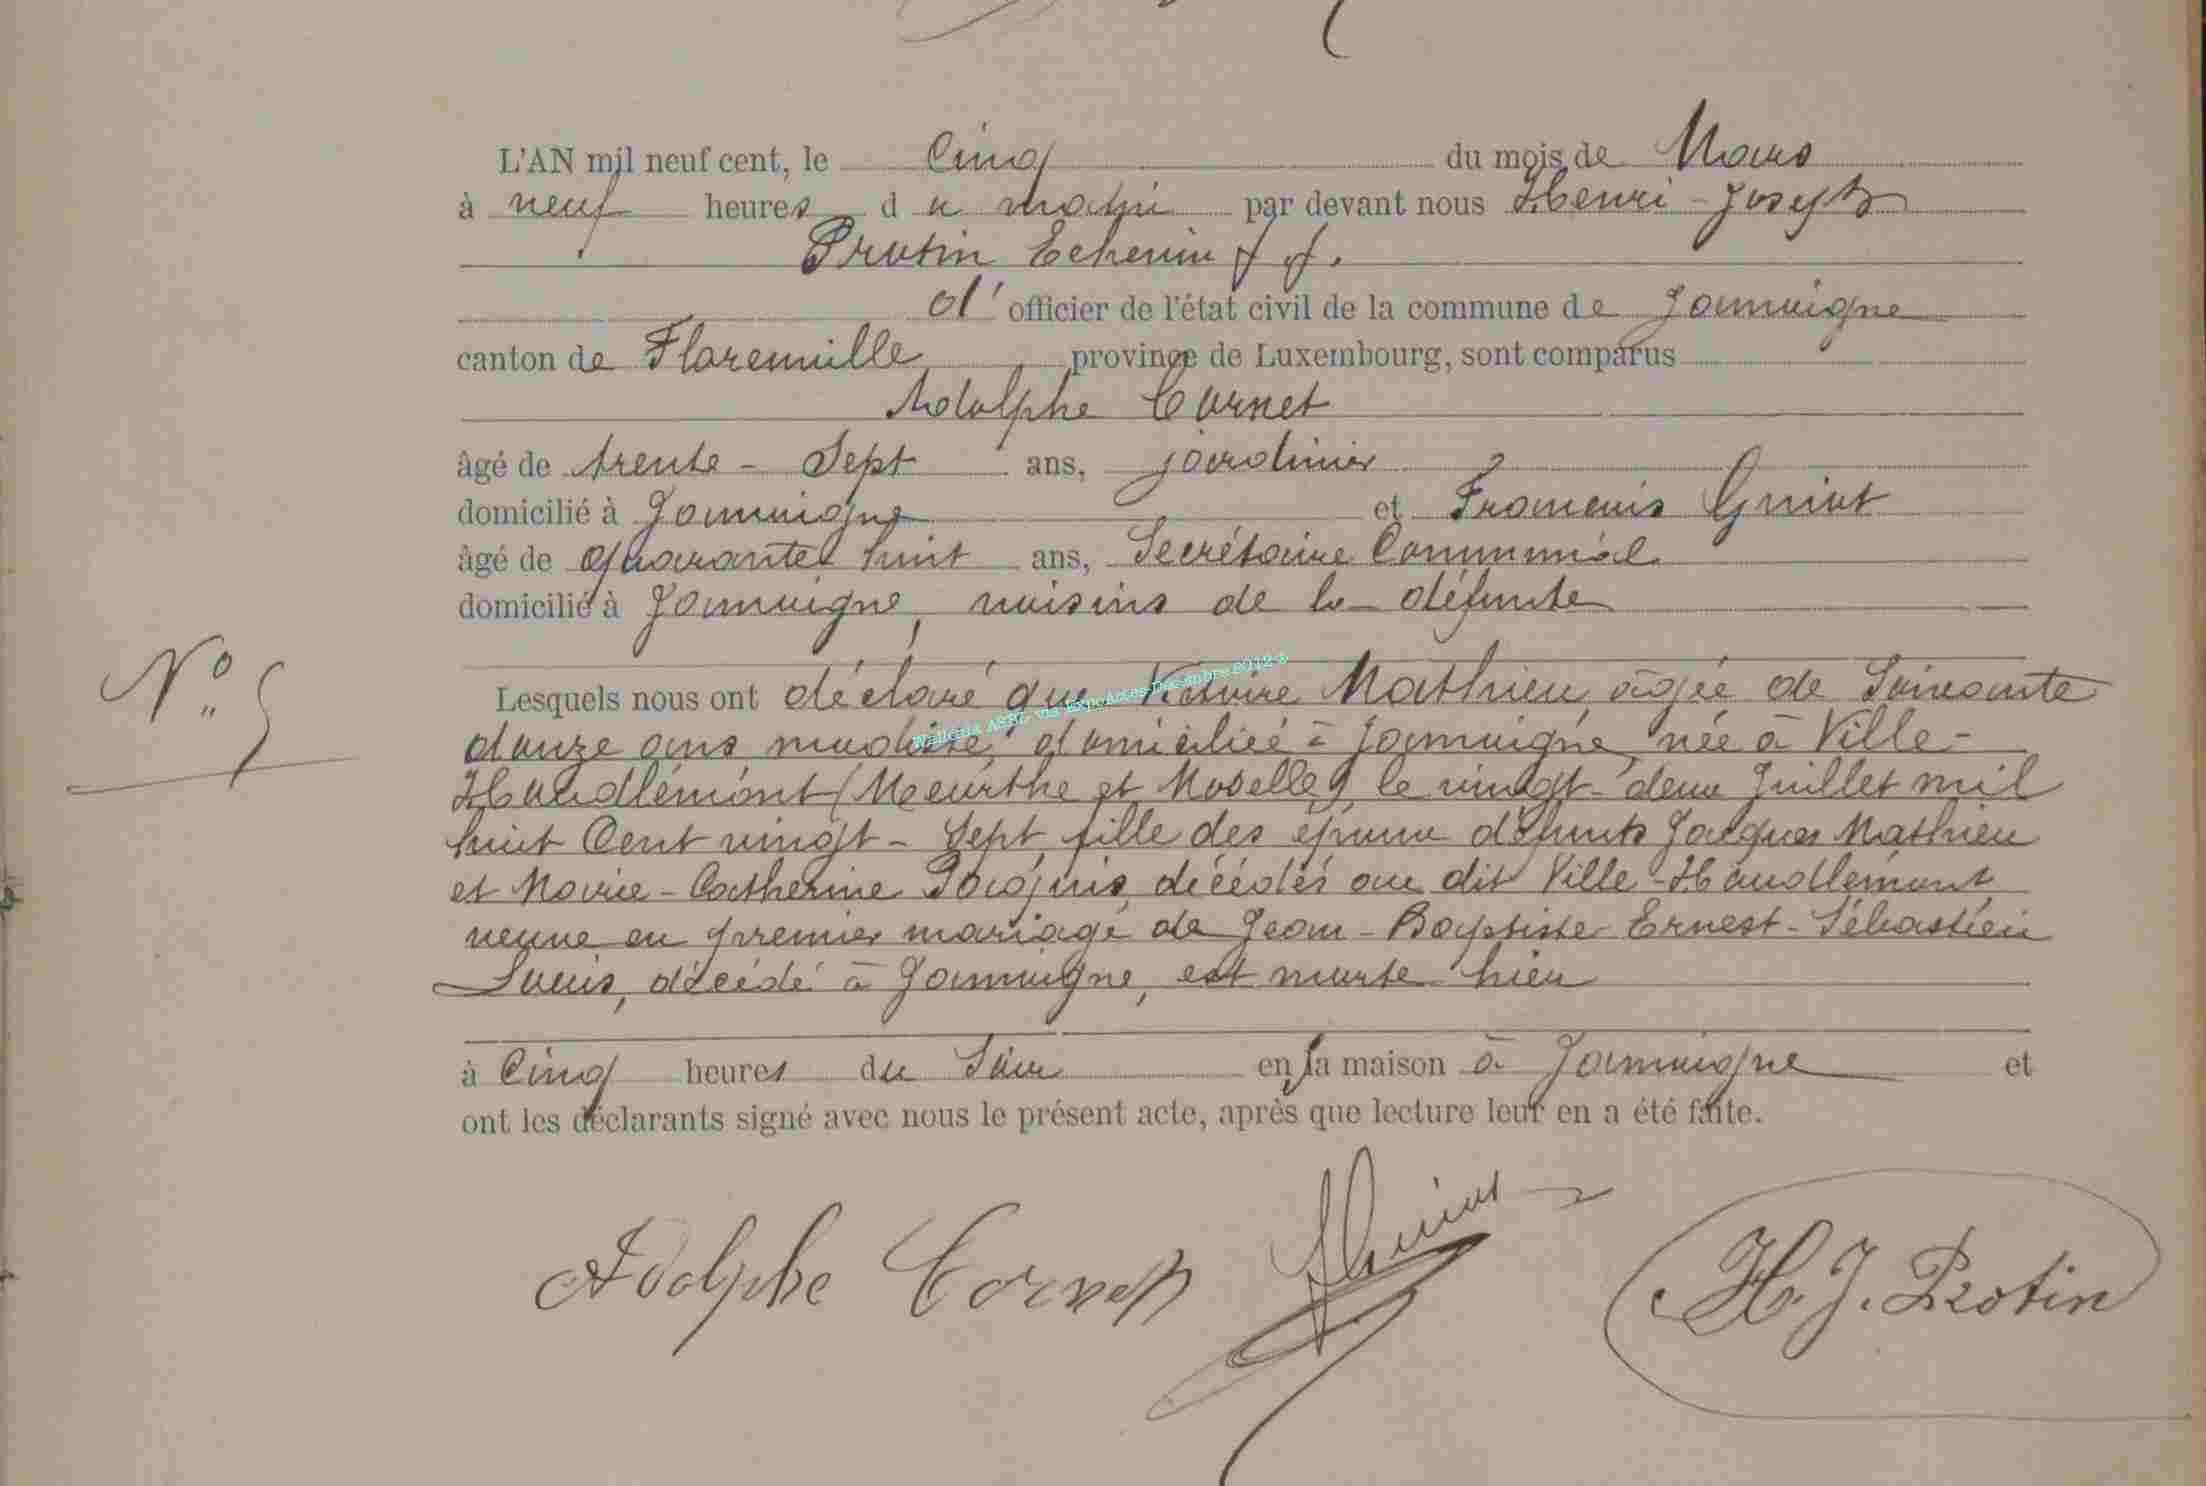 L'AN mil neuf cent, le Cinq du mois de Mars
à neuf heures du matin par devant nous Henri-Joseph
Protin Echevin ff.
d'officier de l'état civil de la commune de Jamoigne
canton de Florenville, province de Luxembourg, sont comparus
Adolphe Cornet
âgé de trente-Sept ans, jardinier
domicilié à Jamoigne et François Guiot
âgé de quarante huit ans, Secrétaire Communal
domicilié à Jamoigne, voisins de la défunte
N° 5
Lesquels nous ont déclaré que Mathieu, âgée de Soixante
douze ans, modiste, domiciliée à Jamoigne, née à Ville-
Houdlémont (Meurthe et Moselle) le vingt-deux Juillet mil
huit Cent vingt-Sept, fille des époux défunts Jacques Mathieu
et Marie-Catherine décédés au dit Ville-Houdlémont,
veuve en premier mariage de Jean-Baptiste-Ernest-Sébastien
décédé à Jamoigne, est morte hier
à Cinq heures du Soir en sa maison à Jamoigne et
ont les déclarants signé avec nous le présent acte, après que lecture leur en a été faite.
Adolphe Cornet Guiot H. J. Protin